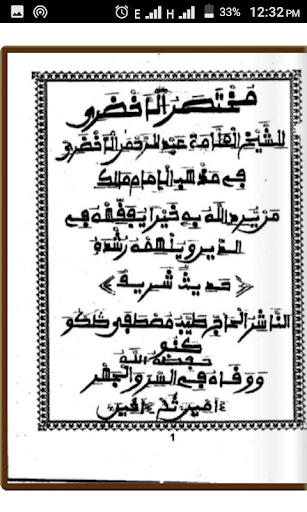 E H 33% 12:32 PM
مختصر الأخضري
للشيخ العلامة عبد الرحمن الأخضري
في مذهب الإمام مالك
من يرد الله به خيرا يفقهه في
الدين ويلهمه رشده
﴿ حديث شريف ﴾
الناشر الحاج طيد مصطفى
كنو
حفظه الله
ووقاه في السر والجهر
آمين ثم آمين
1